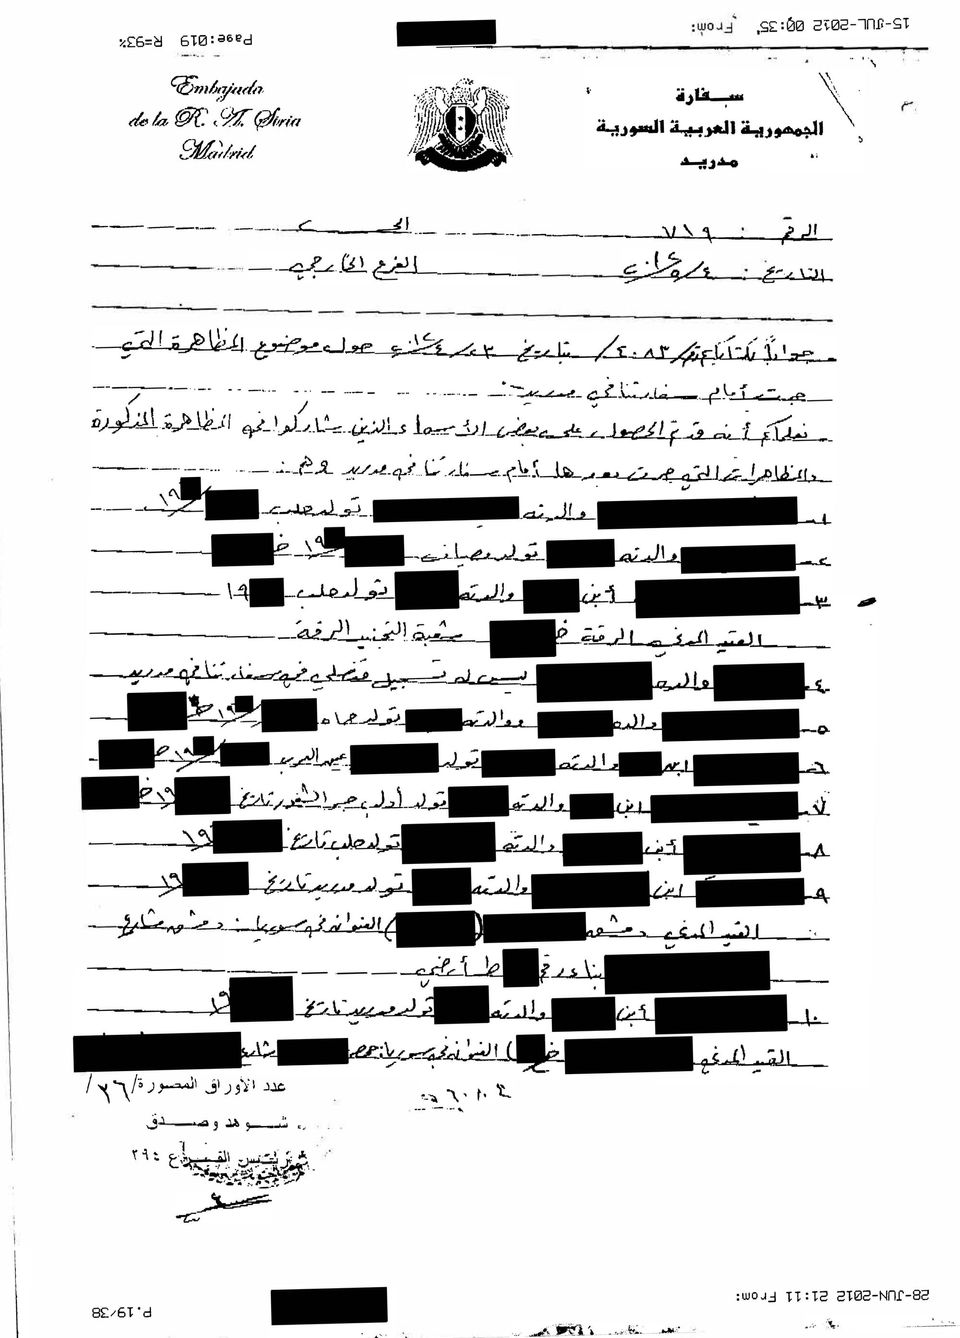 15-JUL-2012 00:35 From:
Page:019 R=93%
Embajada
de la R. A. Siria
Madrid
سفارة
الجمهورية العربية السورية
مدريد
الرقم : ٧١٩
التاريخ :
الفرع الخارجي
جواباً تاريخ حول موضوع المظاهرة التي
جرت أمام سفارتنا في مدريد:
نعلمكم أنه قد تم الحصول على بعض الأسماء الذين شاركوا في المظاهرة المذكورة
والمظاهرات التي جرت بعدها أمام سفارتنا في مدريد وهم:
١- والدته تولد حلب ١٩
٢- والدته تولد ١٩ خ
٣- ابن والدته تولد حلب ١٩
القيد المدني الرقة خ شعبة التجنيد الرقة
٤- والده ليس له تسجيل قنصلي في سفارتنا في مدريد
٥- والده ووالدته تولد حماه ١٩ خ
٦- ابن والدته تولد عين العرب ١٩ خ
٧- ابن والدته تولد أدلب جسر الشغور تاريخ ١٩ خ
٨- أبن والدته تولد حلب تاريخ ١٩
٩- ابن والدته تولد مدريد تاريخ ١٩
القيد المدني دمشق ( ) العنوان في سوريا: دمشق مشارع
بناء رقم ط أرضي
١٠- أبن والدته تولد مدريد تاريخ ١٩
القيد المدني خ ) العنوان في سوريا: حمص شارع
عدد الأوراق المصورة /٢٦/
شوهد وصدق
رئيس الفرع
28-JUN-2012 21:11 From:
P.19/38